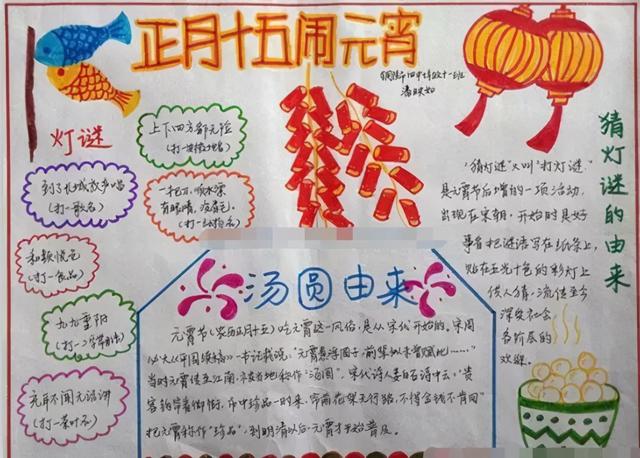 正月十五闹元宵
灯谜
上下四方都无险
(打一
到了长城放声唱
(打一歌名)
一把刀,顺水漂
有眼睛,没眉毛。
(打一动物名)
和颜悦色
(打一食品)
九九重阳
元旦不闻元话讲
(打一茶叶名)
猜灯谜的由来
"猜灯谜"又叫"打灯谜"
是元宵节后增的一项活动,
出现在宋朝。开始时是好
事者把谜语写在纸条上,
贴在五光十色的彩灯上
供人猜,流传至今
深受社会
各阶层的
欢迎。
汤圆由来
元宵节(农历正月十五)吃元宵这一风俗,是从宋代开始的。宋周
必大《平园续稿》一书记载说,"元宵煮浮圆子,前辈似未曾赋此……"
当时元宵传至江南,
地称作"汤圆"。宋代诗人姜白石诗中云:"贵
客钩帘看御街,市中珍品一时来,帘前花架无行路,不得金钱不肯回"
把元宵称作"珍品",到明清以后,元宵才开始普及。